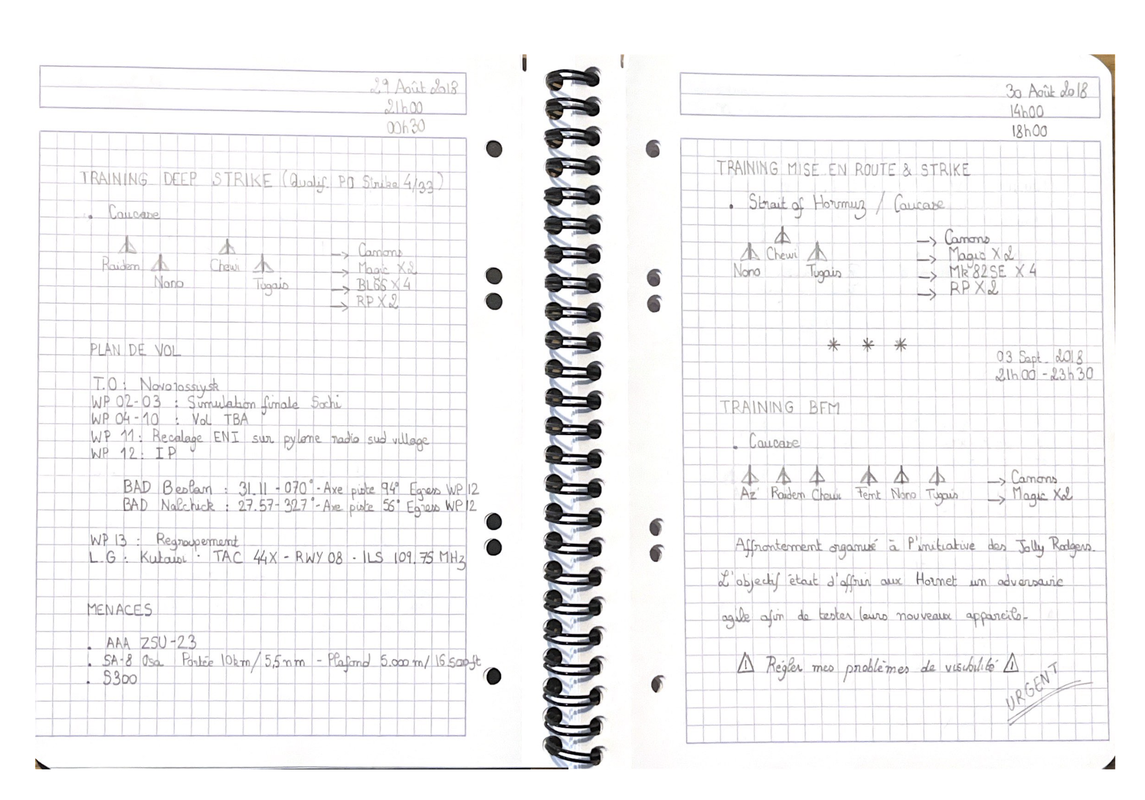 29 Août 2018
21h00
00h30
TRAINING DEEP STRIKE (Qualif. PO Strike 4/33)
. Caucase
Raidem Nono Chewi Tugais
→ Canons
→ Magic X2
→ BLG5 X4
→ RP X2
PLAN DE VOL
T.O : Novorossysk
WP 02-03 : Simulation finale Sochi
WP 04-10 : Vol TBA
WP 11 : Recalage ENI sur pylone radio sud village
WP 12 : IP
BAD Beslan : 31.11 - 070° - Axe piste 94° Egress WP 12
BAD Nalchick : 27.57 - 327° - Axe piste 56° Egress WP 12
WP 13 : Regroupement
L.G : Kutaisi - TAC 44X - RWY 08 - ILS 109.75 MHz
MENACES
. AAA ZSU-23
. SA-8 Osa Portée 10km/5,5nm - Plafond 5.000 m/16 500ft
. S300
30 Août 2018
14h00
18h00
TRAINING MISE EN ROUTE & STRIKE
. Strait of Hormuz / Caucase
Nono Chewi Tugais
→ Canons
→ Magic X2
→ Mk 82SE X 4
→ RP X2
* * *
03 Sept. 2018
21h00 - 23h30
TRAINING BFM
. Caucase
Az' Raidem Chewi Fent Nono Tugais
→ Canons
→ Magic X2
Affrontement organisé à l'initiative des Jolly Rodgers.
L'objectif était d'offrir aux Hornet un adversaire
agile afin de tester leurs nouveaux appareils.
⚠ Régler mes problèmes de visibilité ⚠
URGENT